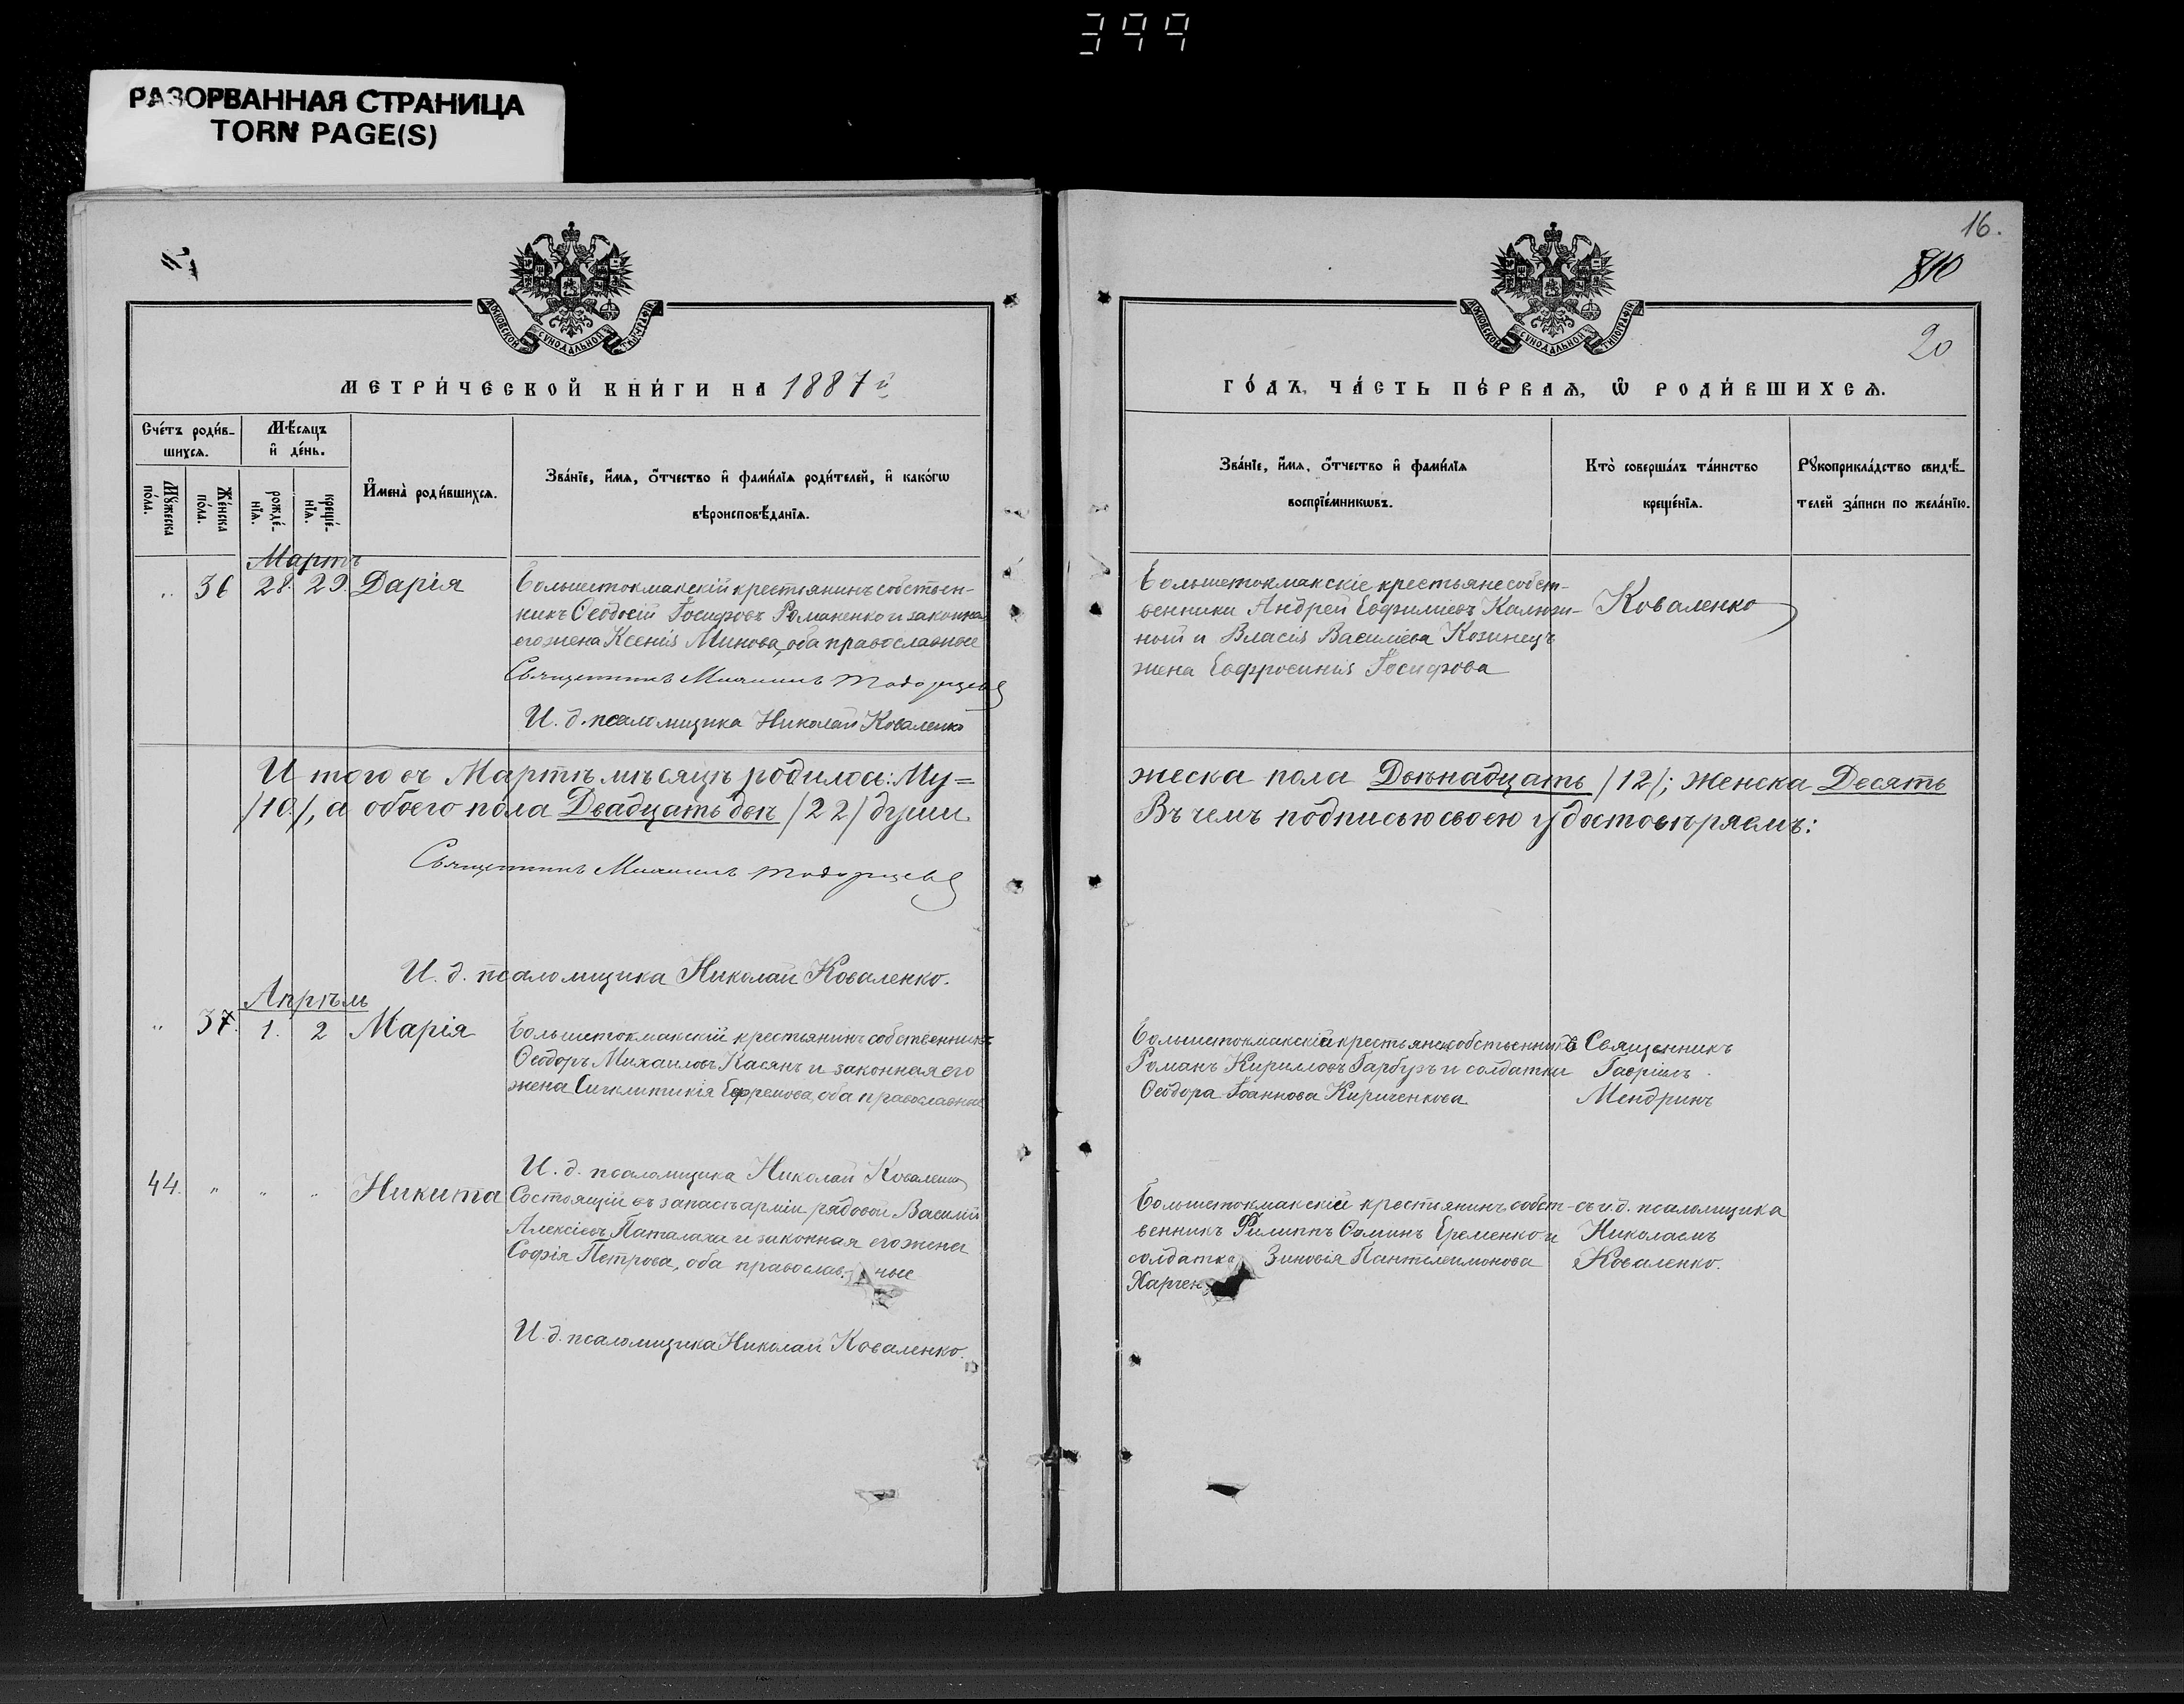 399
РАЗОРВАННАЯ СТРАНИЦА
TORN PAGE(S)
МОСКОВСКОЙ СУНОДАЛЬНОЙ ТИПОГРАФІИ
МЕТРИ́ЧЕСКОЙ КНИ́ГИ НА 1887й
Сче́тъ роди́в-
шихсѧ.
Мѣ́сѧцъ
и҆ де́нь.
Му́жеска
по́ла.
Же́нска
по́ла.
рожде́-
нїѧ.
креще́-
нїѧ.
И҆мена̀ роди́вшихсѧ.
Зва́нїе, и҆́мѧ, о҆́тчество и҆ фами́лїѧ роди́телей, и҆ како́гѡ
вѣроисповѣ́данїѧ.
Мартъ
„ 36 28. 29. Дарія
Большетокмакскій крестьянинъ собствен-
никъ Ѳеодосій Іосифовъ Романенко и законная
его жена Ксенія Минова, оба православные
Священникъ Михаилъ
И. д. псаломщика Николай Коваленко
И того въ Мартѣ мѣсяцѣ родилось: Му=
/10/, а обоего пола Двадцать двѣ /22/ души.
Священникъ Михаилъ
И. д. псаломщика Николай Коваленко.
Апрѣль
„ 37. 1. 2 Марія
Большетокмакскій крестьянинъ собственникъ
Ѳеодоръ Михаиловъ Касянъ и законная его
жена Сигклитикія Ефремова, оба православные
И. д. псаломщика Николай Коваленко
44. „ „ „ Никита
Состоящій въ запасѣ арміи рядовой Василій
Алексіевъ Паталаха и законная его жена
Софія Петрова, оба православные
И. д. псаломщика Николай Коваленко.
16.
810
20
МОСКОВСКОЙ СУНОДАЛЬНОЙ ТИПОГРАФІИ
ГО́ДЪ, ЧА́СТЬ ПЕ́РВАѦ, Ѡ҆ РОДИ́ВШИХСѦ.
Зва́нїе, и҆́мѧ, о҆́тчество и҆ фами́лїѧ
воспрїе́мникѡвъ.
Кто̀ соверша́лъ та́инство
креще́нїѧ.
Рꙋкоприкла́дство свидѣ́-
телей за́писи по жела́нїю.
Большетокмакскіе крестьяне собст-
венники Андрей Евфиміевъ Калюж-
ный и Власія Василіева Козинецъ
жена Евфросинія Іосифова
Коваленко
жеска пола Двѣнадцать /12/; женска Десять
Въ чемъ подписью своею удостовѣряемъ:
Большетокмакскій крестьянинъ собственникъ
Романъ Кирилловъ Гарбузъ и солдатка
Ѳеодора Іоаннова Кириченкова
Священникъ
Гавріилъ
Мендринъ
Большетокмакскій крестьянинъ собст-
венникъ Филиппъ Ѳоминъ Еременко и
солдатка Зиновія Пантелеимонова
Харчен
съ и. д. псаломщика
Николаемъ
Коваленко.